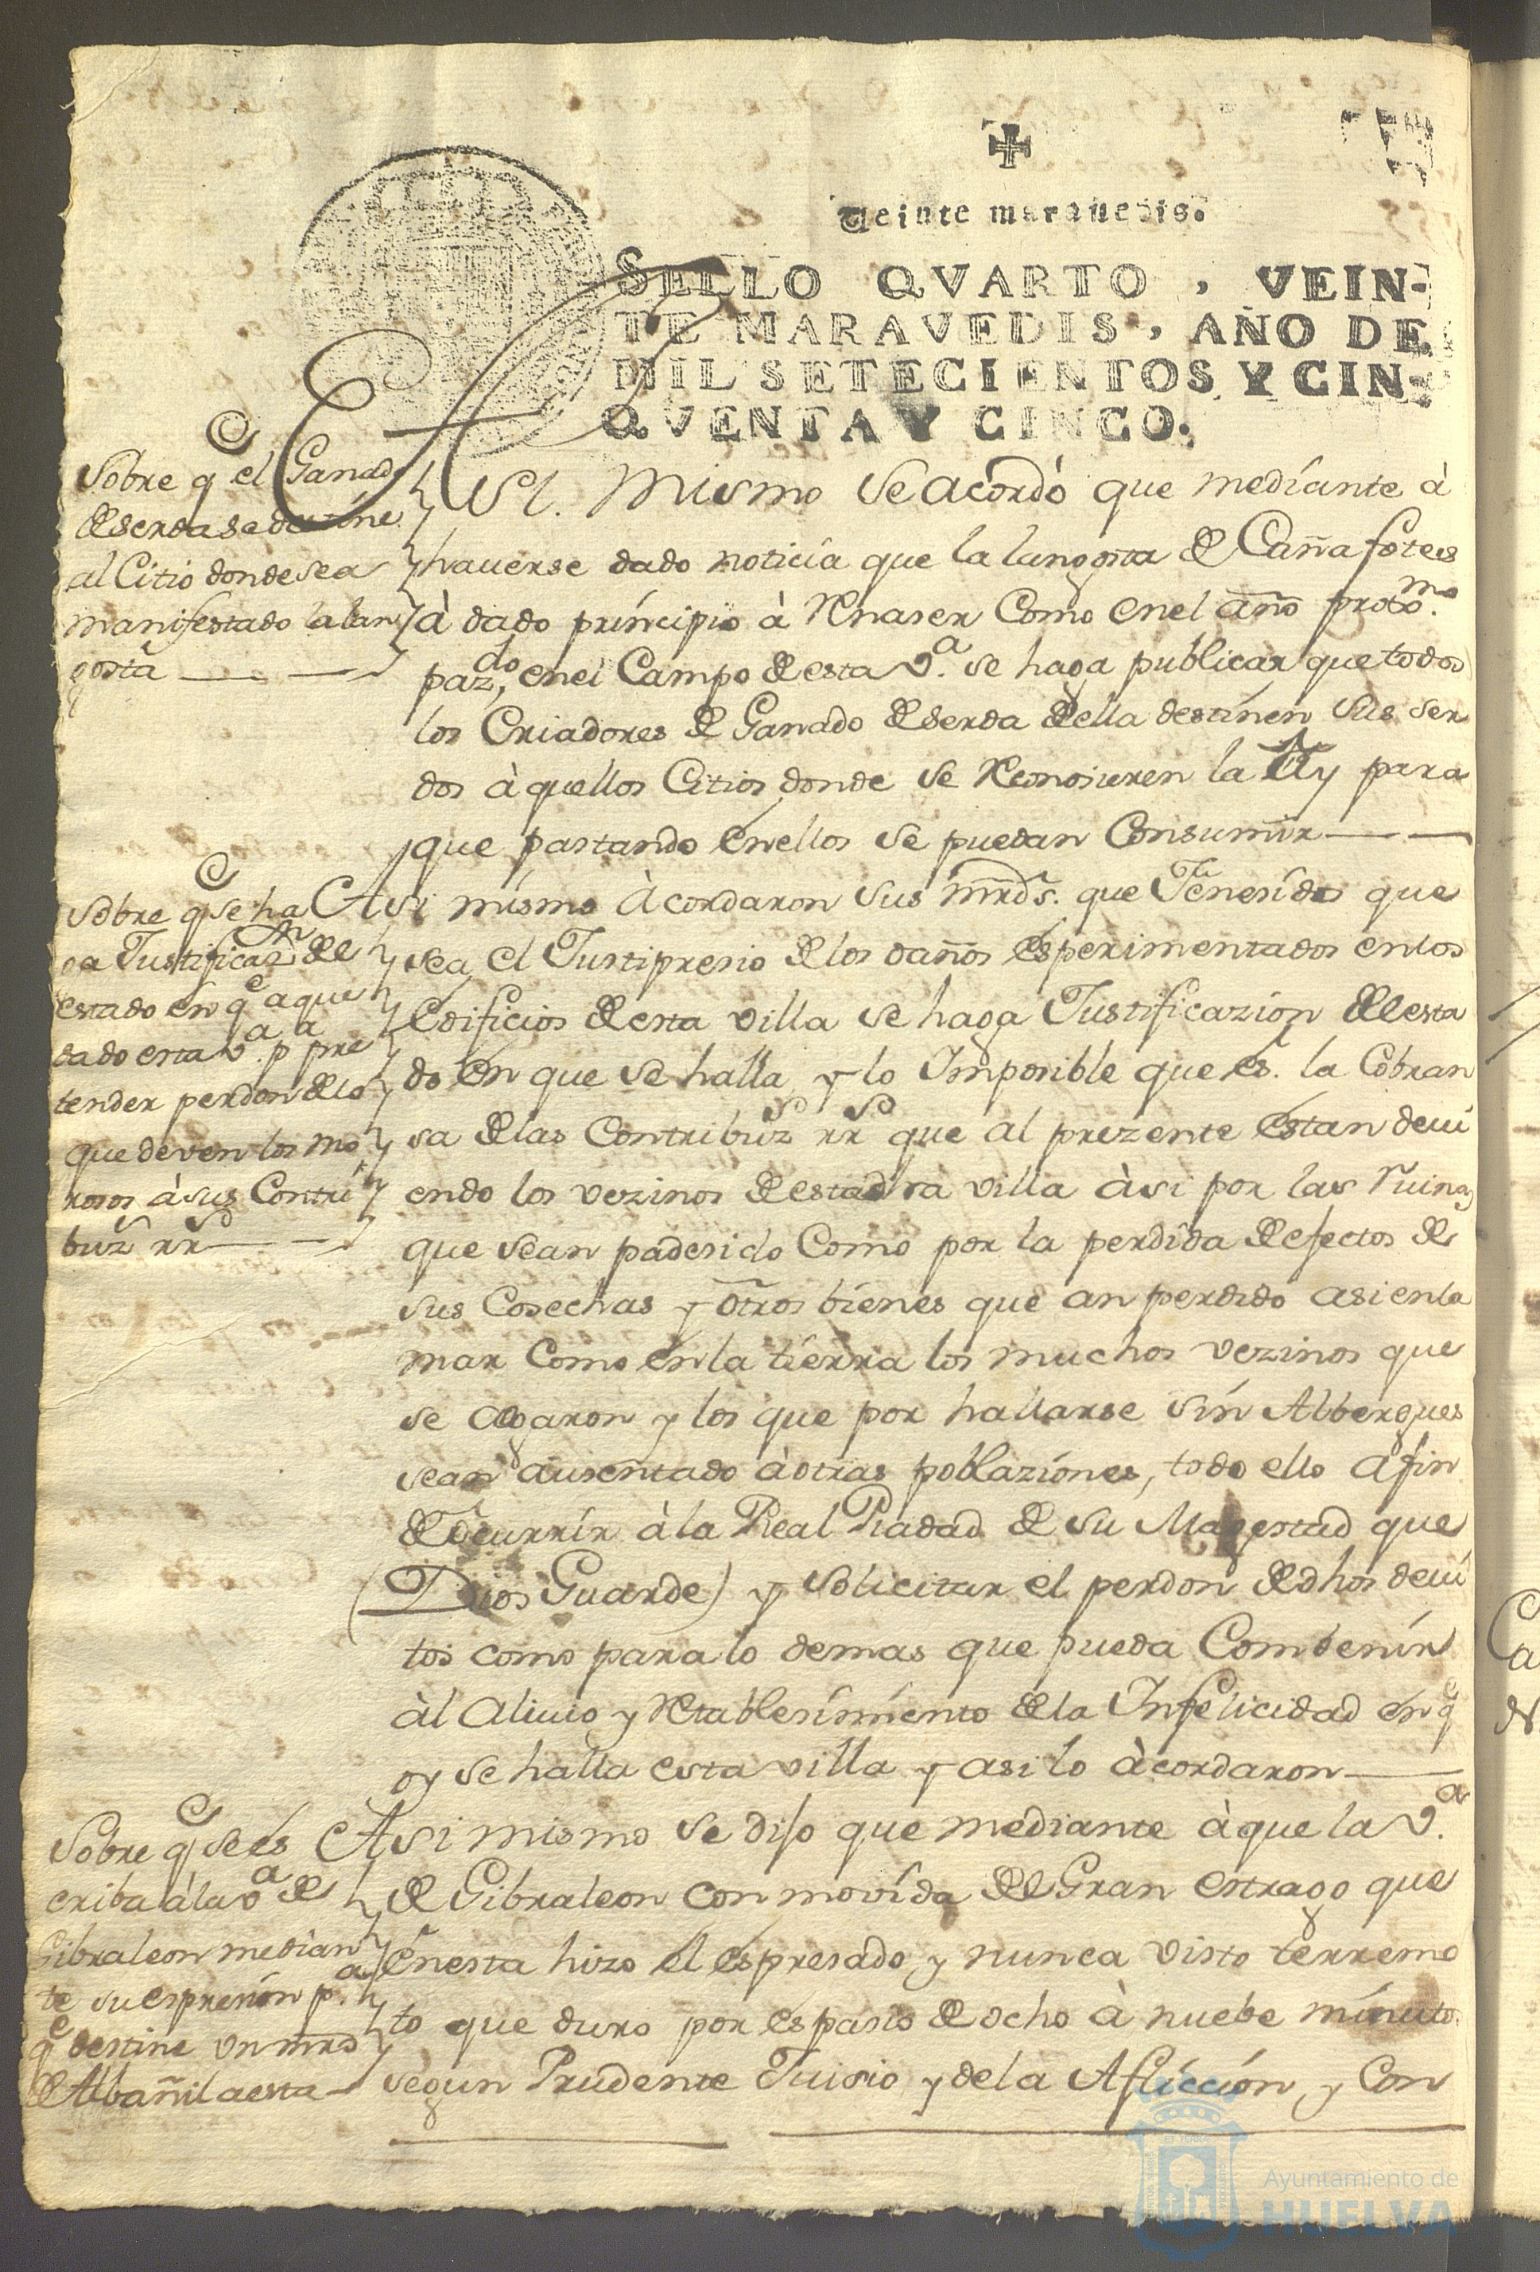 Veinte maravedis.
SELLO QVARTO, VEIN-
TE MARAVEDIS, AÑO DE
MIL SETECIENTOS Y CIN-
QVENTA Y CINCO.
Sobre q el Ganado
de serda se destine
al Citio donde sea
manifestado la lan
gosta
Asi. Mismo se acordó que mediante à
hauerse dado noticia que la langosta de Cañafotes
à dado principio à Renaser Como en el año proxo.mo
pazdo, en el Campo de esta va. se haga publicar que todos
los Criadores de Ganado de serda della destinen sus ser
dos à quellos Citios donde se Reconosieren la Ay para
que pastando en ellos se puedan Consumir
Sobre q se ha
ga Justificazn del
estado en qe a que
dado esta va. pa pre
tender perdon de lo
que deven los mo
rosos à sus Contri
buzs rrs
Asi mismo Acordaron sus mrds. que Fenesido que
sea el Justipresio de los daños esperimentados en los
Edificios de esta villa se haga Justificazion del esta
do en que se halla, y lo Imposible que es. la Cobran
sa de las Contribuzs rrs que al prezente estan devi
endo los vezinos de esta dha villa àsi por las ruinas
que sean padesido Como por la perdida de efectos de
sus Cosechas y otros bienes que an perdido asi en la
mar Como en la tierra los muchos vezinos que
se ogaron y los que por hallarse sin Albergues
sean ausentado à otras poblaziones, todo ello afin
de ocurrir à la Real Piadad de su Magestad que
(Dios Guarde) y solicitar el perdon de dhos devi
tos como para lo demas que pueda Combenir
àl Aliuio y Restablesimiento de la Infelicidad en qe
oy se halla esta villa y asi lo àcordaron
Sobre q se es
criba à la va de
Gibraleon median
te su espresion pa.
qe destine un mro
de Albañil a esta
Asi mismo se dijo que mediante à que la va.
de Gibraleon conmovida del Gran estrago que
en esta hizo el espresado y nunca visto terremo
to que duro por espasio de ocho à nuebe minutos
segun Prudente Juisio y de la Aflicción, y Con
Ayuntamiento de
HUELVA